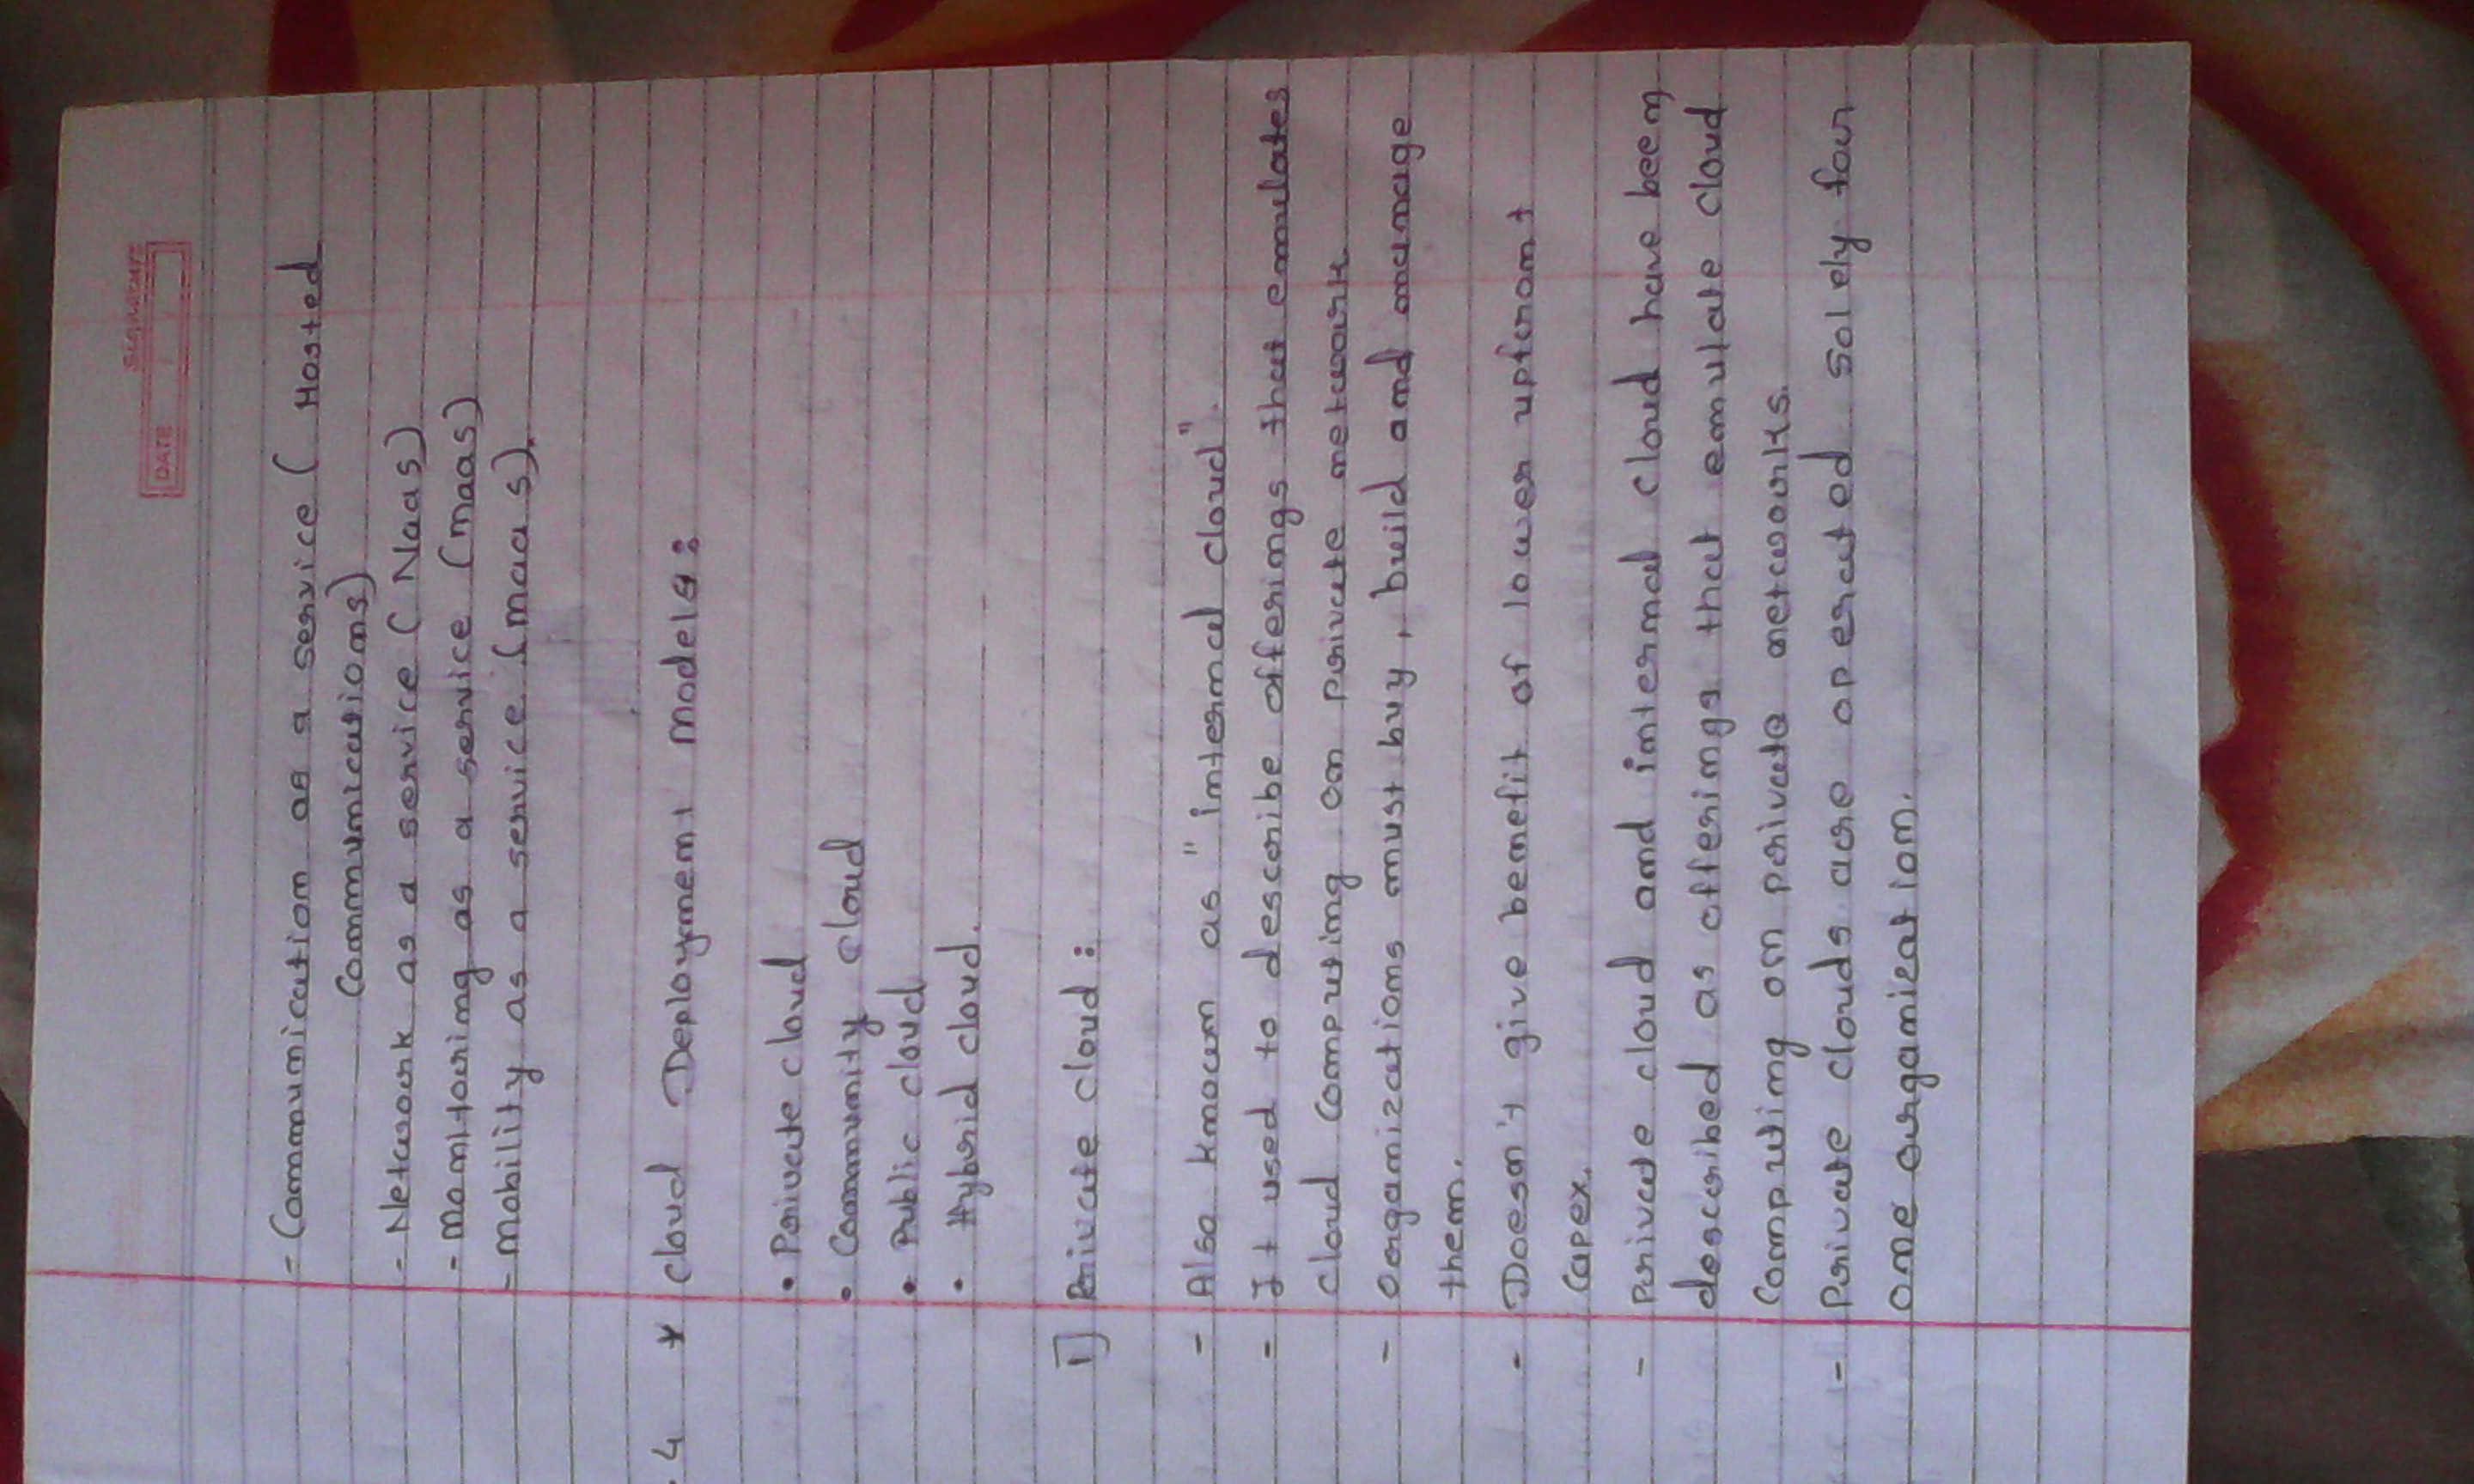 Signature
DATE / /
- Communication as a service ( Hosted
Communications)
- Network as a service ( Naas)
- Monitoring as a service (maas)
- Mobility as a service (maas).
.4 * cloud Deployment models:
• Private cloud
• Community cloud
• Public cloud
• Hybrid cloud.
1] Private cloud :
- Also known as "internal cloud".
- It used to describe offerings that emulates
cloud computing on private network
- Organizations must buy, build and manage
them.
- Doesn't give benefit of lower upfront
Capex.
- private cloud and internal cloud have been
described as offerings that emulate cloud
Computing on private networks.
- Private clouds are operated solely for
one organization.